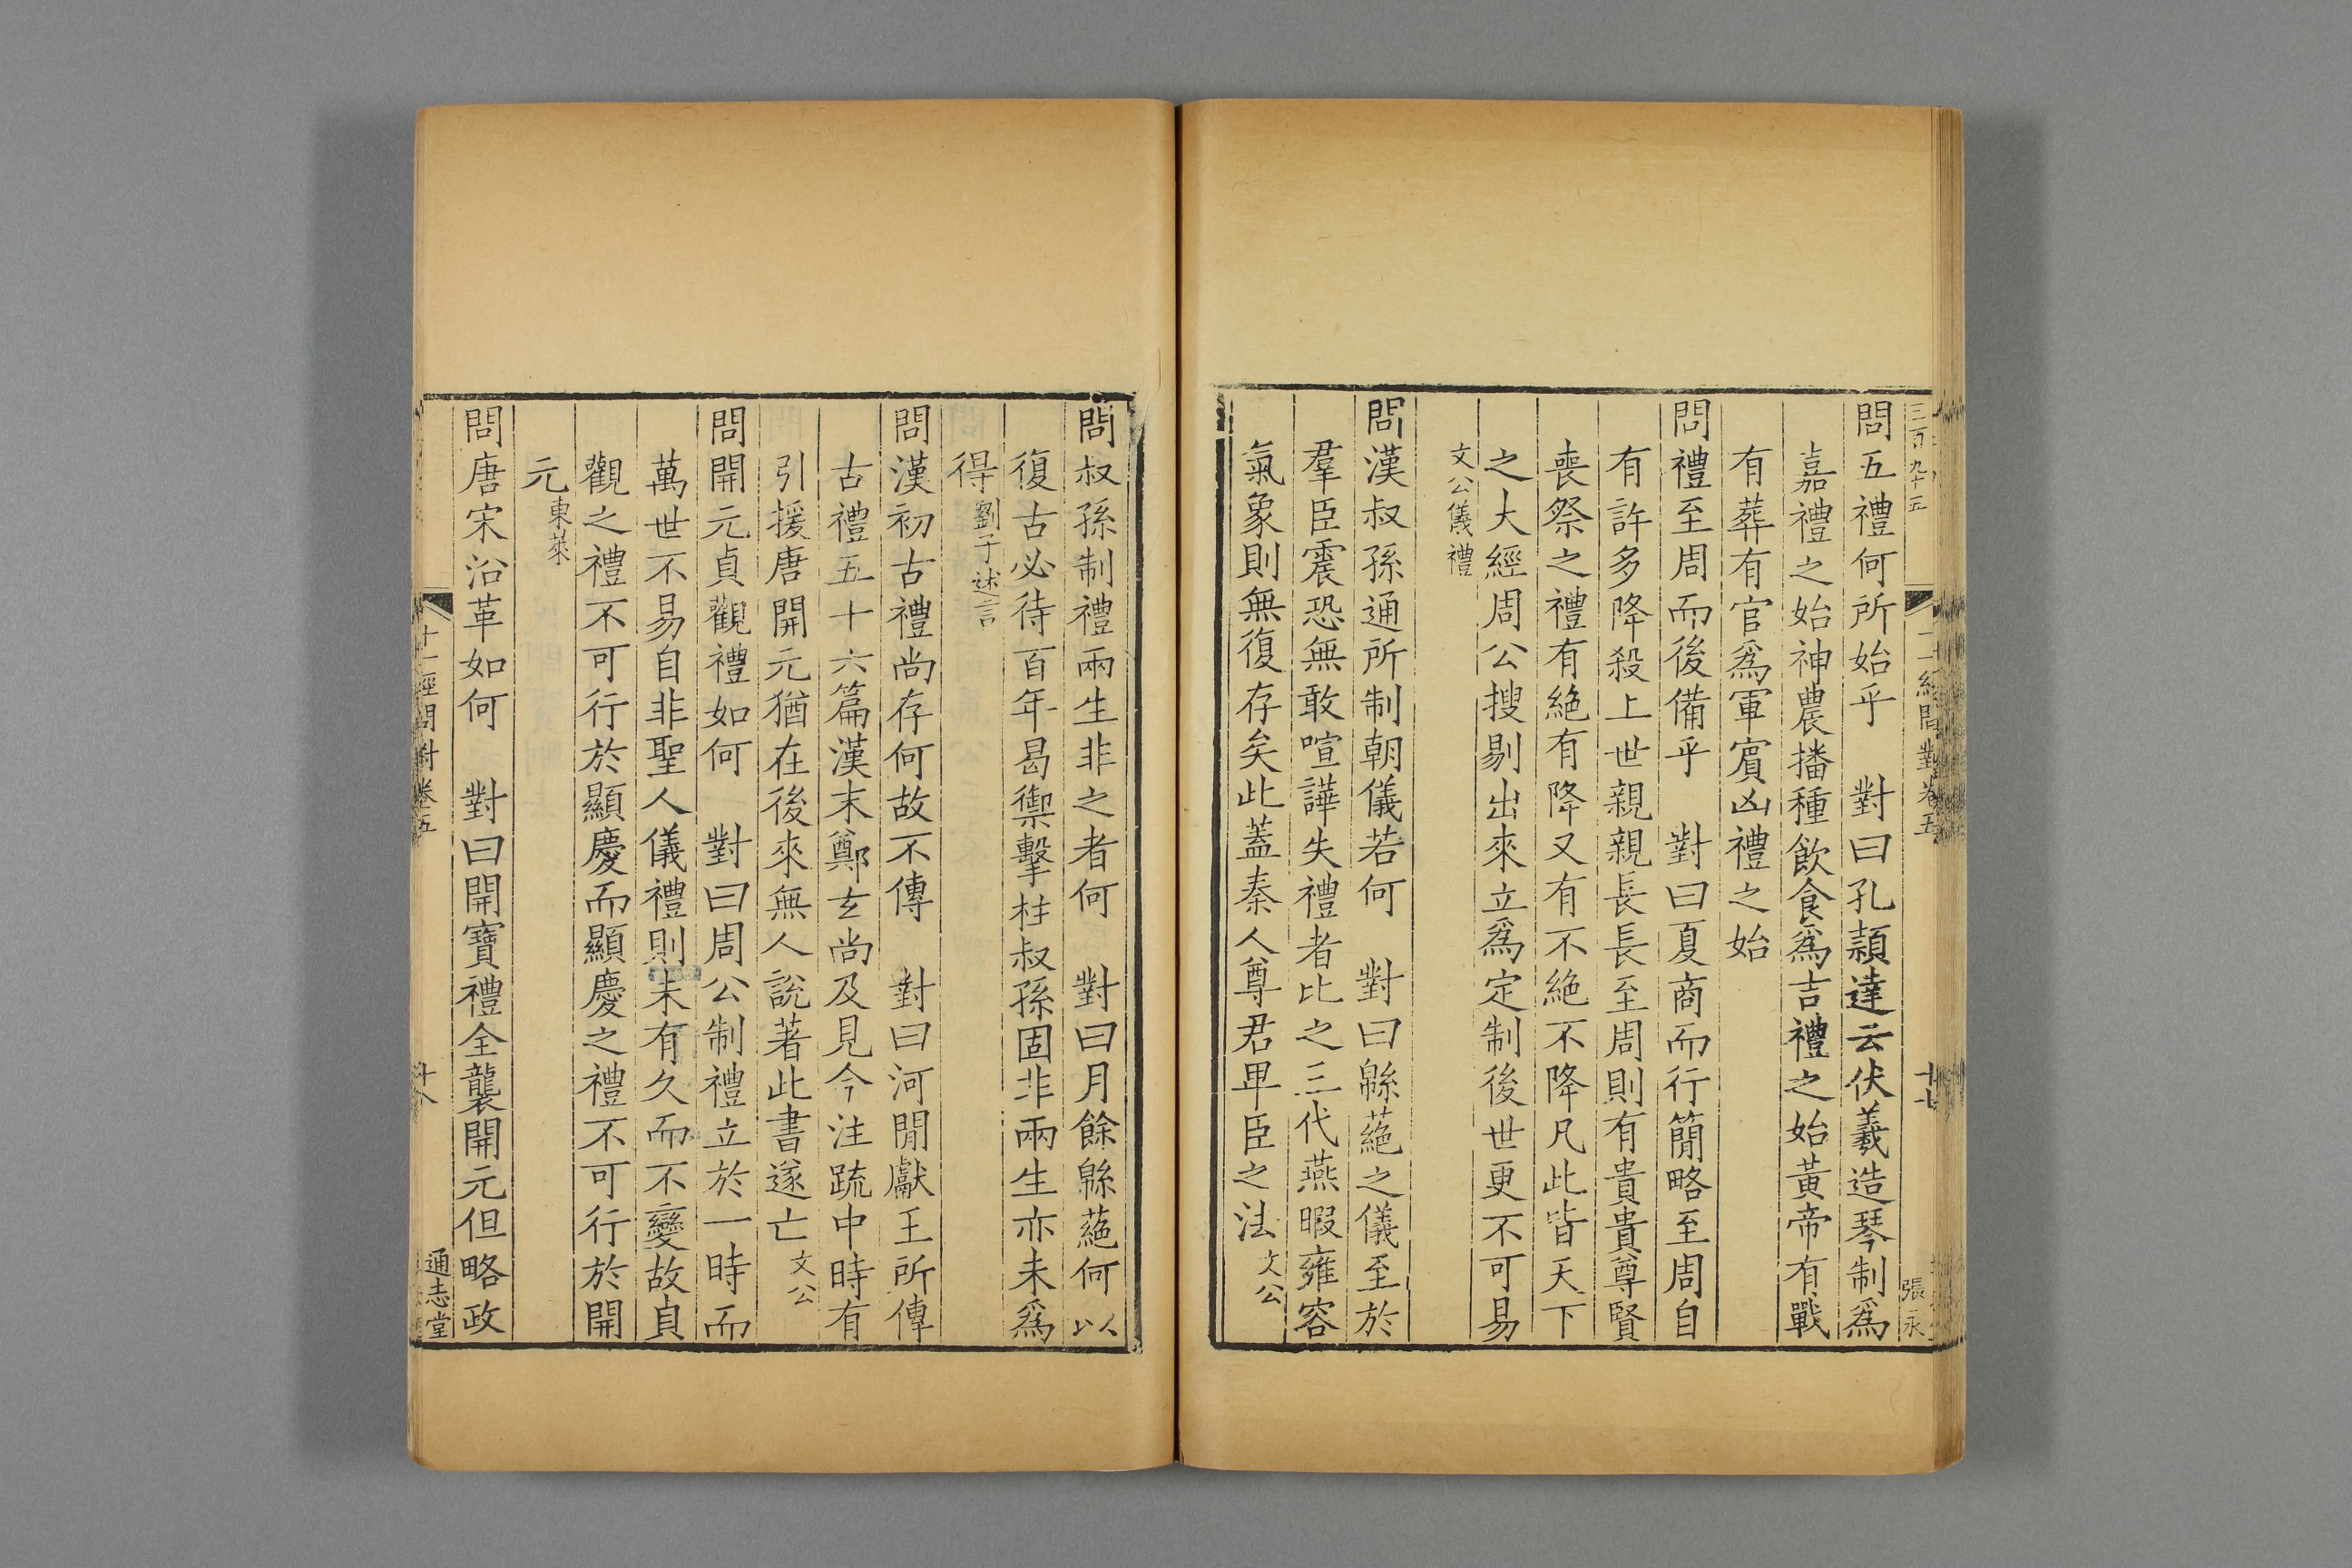 三百九十五
十一經問對卷五
十七
張永
問五禮何所始乎 對曰孔頴達云伏羲造琴制爲
嘉禮之始神農播種飲食爲吉禮之始黃帝有戰
有葬有官爲軍賔凶禮之始
問禮至周而後備乎 對曰夏商而行簡略至周自
有許多降殺上世親親長長至周則有貴貴尊賢
喪祭之禮有絶有降又有不絶不降凡此皆天下
之大經周公搜剔出來立爲定制後世更不可易
文公儀禮
問漢叔孫通所制朝儀若何 對曰緜蕝之儀至於
羣臣震恐無敢喧譁失禮者比之三代燕暇雍容
氣象則無復存矣此蓋秦人尊君卑臣之法文公
問叔孫制禮兩生非之者何 對曰月餘緜蕝何以
復古必待百年曷禦擊柱叔孫固非兩生亦未爲
得劉子述言
問漢初古禮尚存何故不傳 對曰河閒獻王所傳
古禮五十六篇漢末鄭玄尚及見今注疏中時有
引援唐開元猶在後來無人說著此書遂亡文公
問開元貞觀禮如何 對曰周公制禮立於一時而
萬世不易自非聖人儀禮則未有久而不變故貞
觀之禮不可行於顯慶而顯慶之禮不可行於開
元東萊
問唐宋沿革如何 對曰開寶禮全襲開元但略政
十一經問對卷五
十八
通志堂